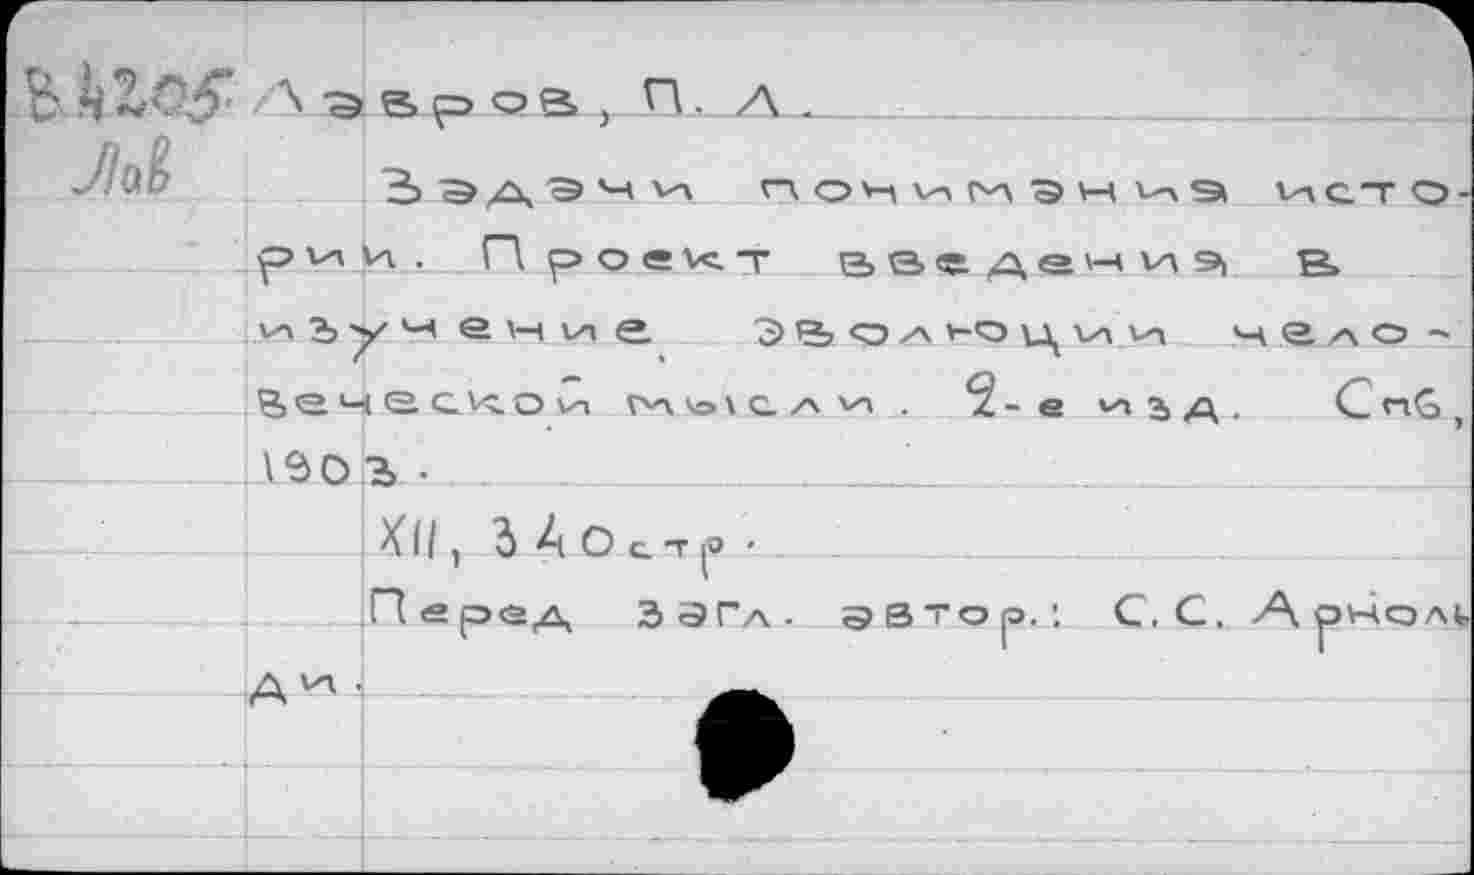 В4205 Лавров, П. Л.
Лав
Задачи понимания исто-
рии. Проект введения в
изучение эволюции чело-
веческой мысли. 2-е изд. Спб,
1903.
XII, 340 стр.
Перед загл. автор.: С. С. Арноль
ди.